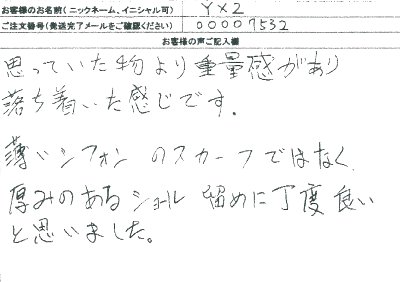 お客様のお名前(ニックネーム、イニシャル可) YX2
ご注文番号(発送完了メールをご確認ください) 00007532
お客様の声ご記入欄
思っていた物より重量感があり
落ち着いた感じです.
薄いシフォンのスカーフではなく、
厚みのあるショール留めに丁度良い
と思いました。